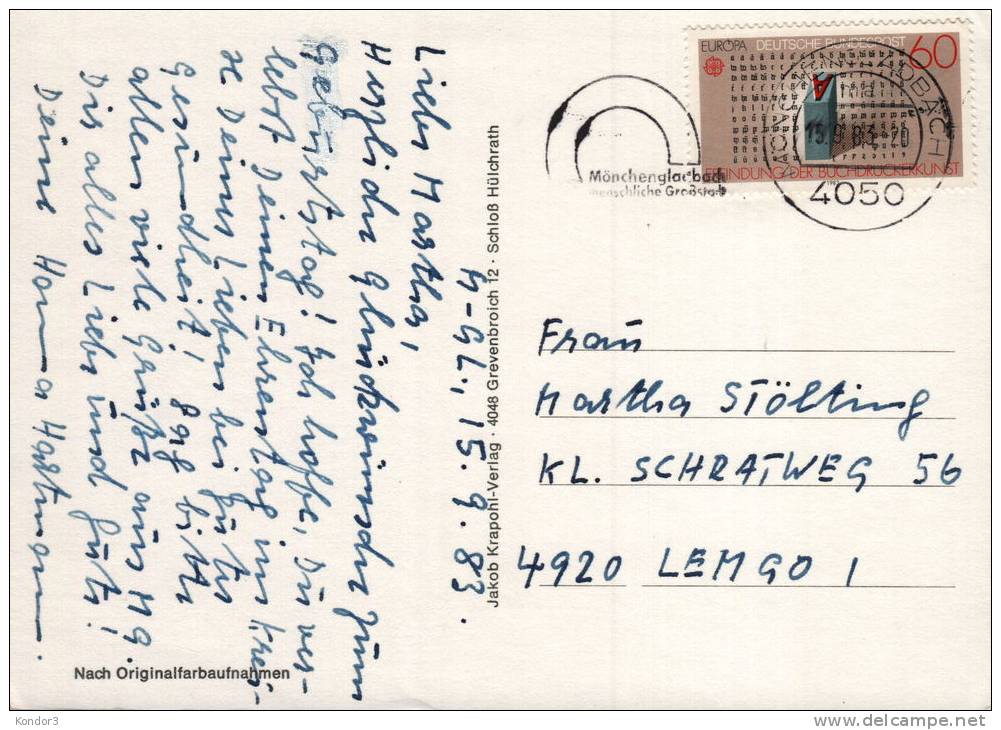 M-GL, 15.9.83.
Liebe Martha,
Herzliche Glückwünsche zum
Geburtstag! Ich hoffe, Du ver-
lebst Deinen Ehrentag im Krei-
se Deiner Lieben bei guter
Gesundheit! Sag bitte
allen viele Grüße aus MG.
Dir alles Liebe und Gute!
Deine Hanna Hartmann.
Nach Originalfarbaufnahmen
Jakob Krapohl-Verlag · 4048 Grevenbroich 12 · Schloß Hülchrath
EUROPA DEUTSCHE BUNDESPOST 60
A
ERFINDUNG DER BUCHDRUCKERKUNST
1983
15.9.83-20
4050
Mönchengladbach
menschliche Großstadt
Frau
Martha Stölting
KL. SCHRATWEG 56
4920 LEMGO 1
Kondor3
delcampe.net